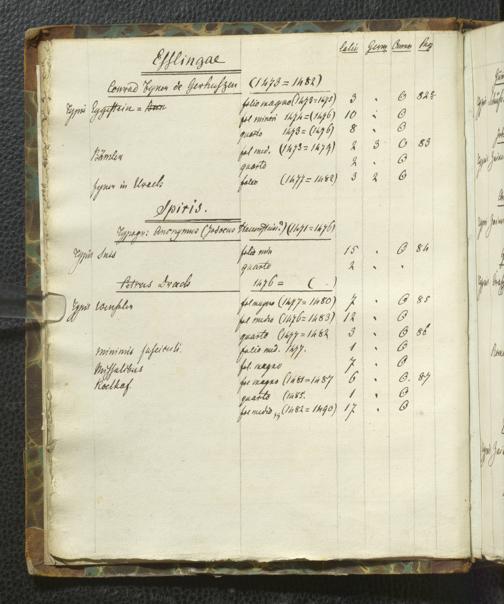 Latin Germ Pag
Esslingae
Conrad Fyner de Gerhussen (1473=1482)
Typis Eggestein = folio magno (1473=1475) 3 " 
fol minori 1474=(1476) 10 "
quarto 1473=(1476) 8 "
Bämler fol. med. (1473=1479) 2 3 83
quarto 2 "
Fyner in Urach folio (1477=1482) 3 2
Spiris.
Typogr: Anonymus (Jodocus (1471=1476)
Typis Suis folio min 15 " 84
quarto 2 " "
Petrus Drach 1476=( )
Typis fol magno (1477=1480) 7 " 85
fol medio (1476=1483) 12 "
quarto (1477=1482 3 " 86
minimis folio med. 1477. 1 "
Missalibus fol. magno 7 "
Koelhof fol magno (1481=1487 6 " 87
quarto (1485. 1 "
fol medio (1482=1490) 17 "